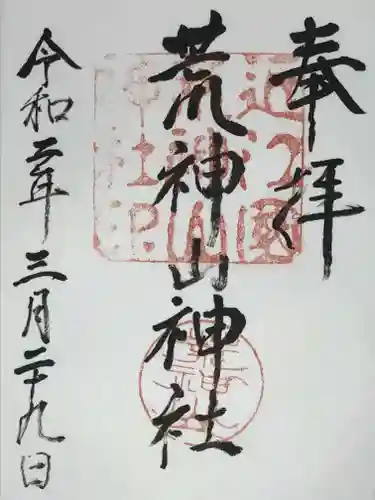 奉拝
荒神山神社
令和二年三月二十九日